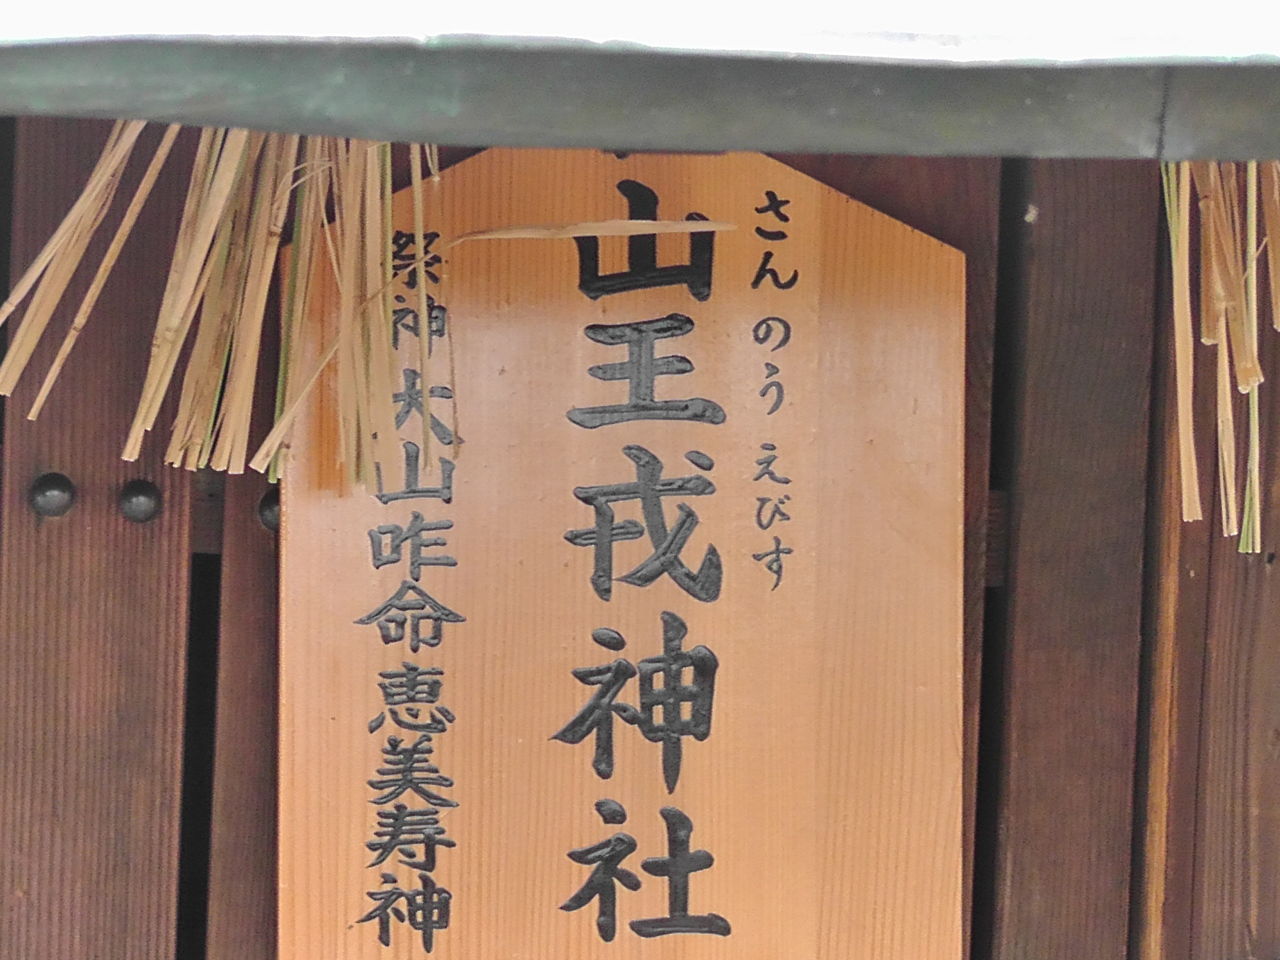 さんのう えびす
山王戎神社
祭神 大山咋命 恵美寿神